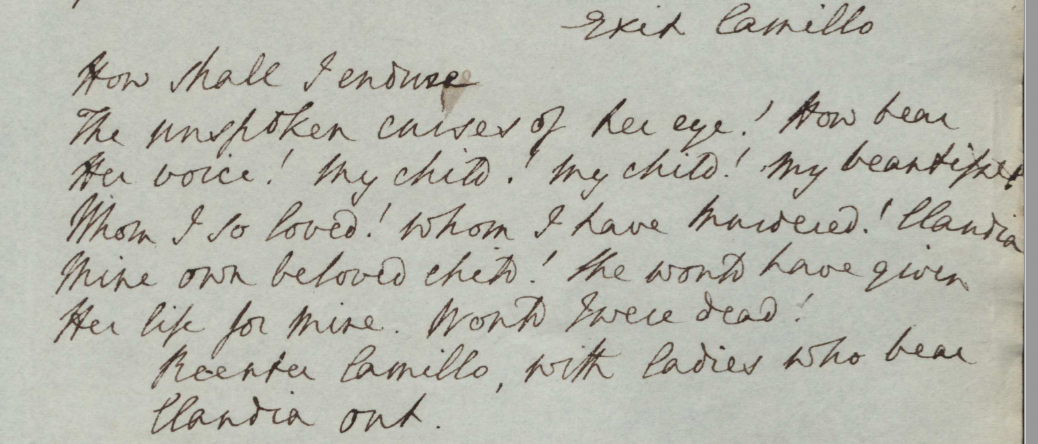 Exit Camillo
How shall I endure
The unspoken curses of her eye! How bear
Her voice! My child! My child! My beautiful
Whom I so loved! Whom I have murdered! Claudia
Mine own beloved child! She would have given
Her life for mine. Would I were dead!
Reenter Camillo, with Ladies who bear
Claudia out.